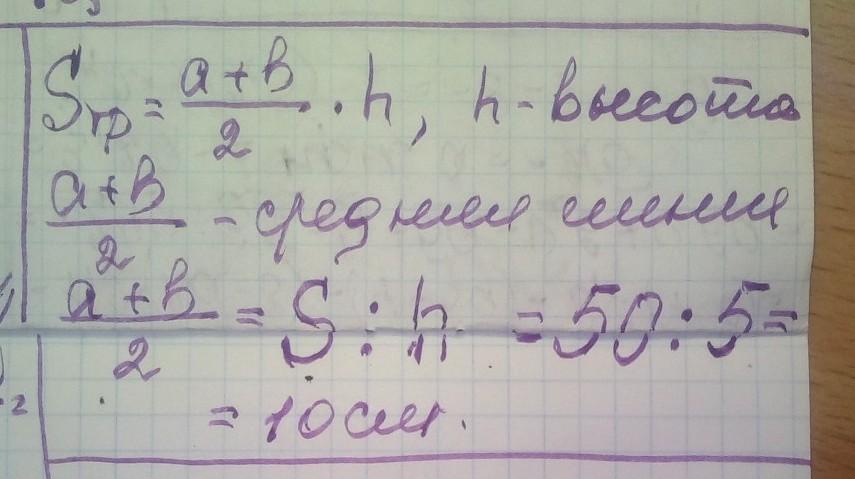 Sтр = a+b/2 · h, h - высота
a+b/2 - средняя линия
a+b/2 = S : h = 50 : 5 =
= 10 см.